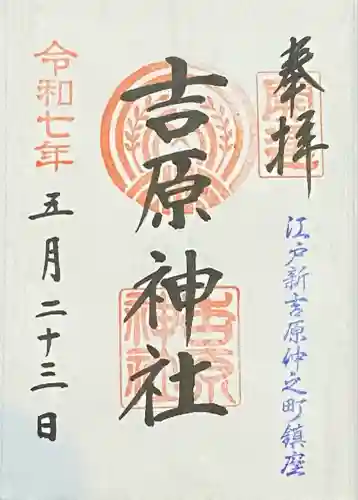 奉拝
江戸新吉原仲之町鎮座
吉原神社
吉原神社
令和七年
五月二十三日